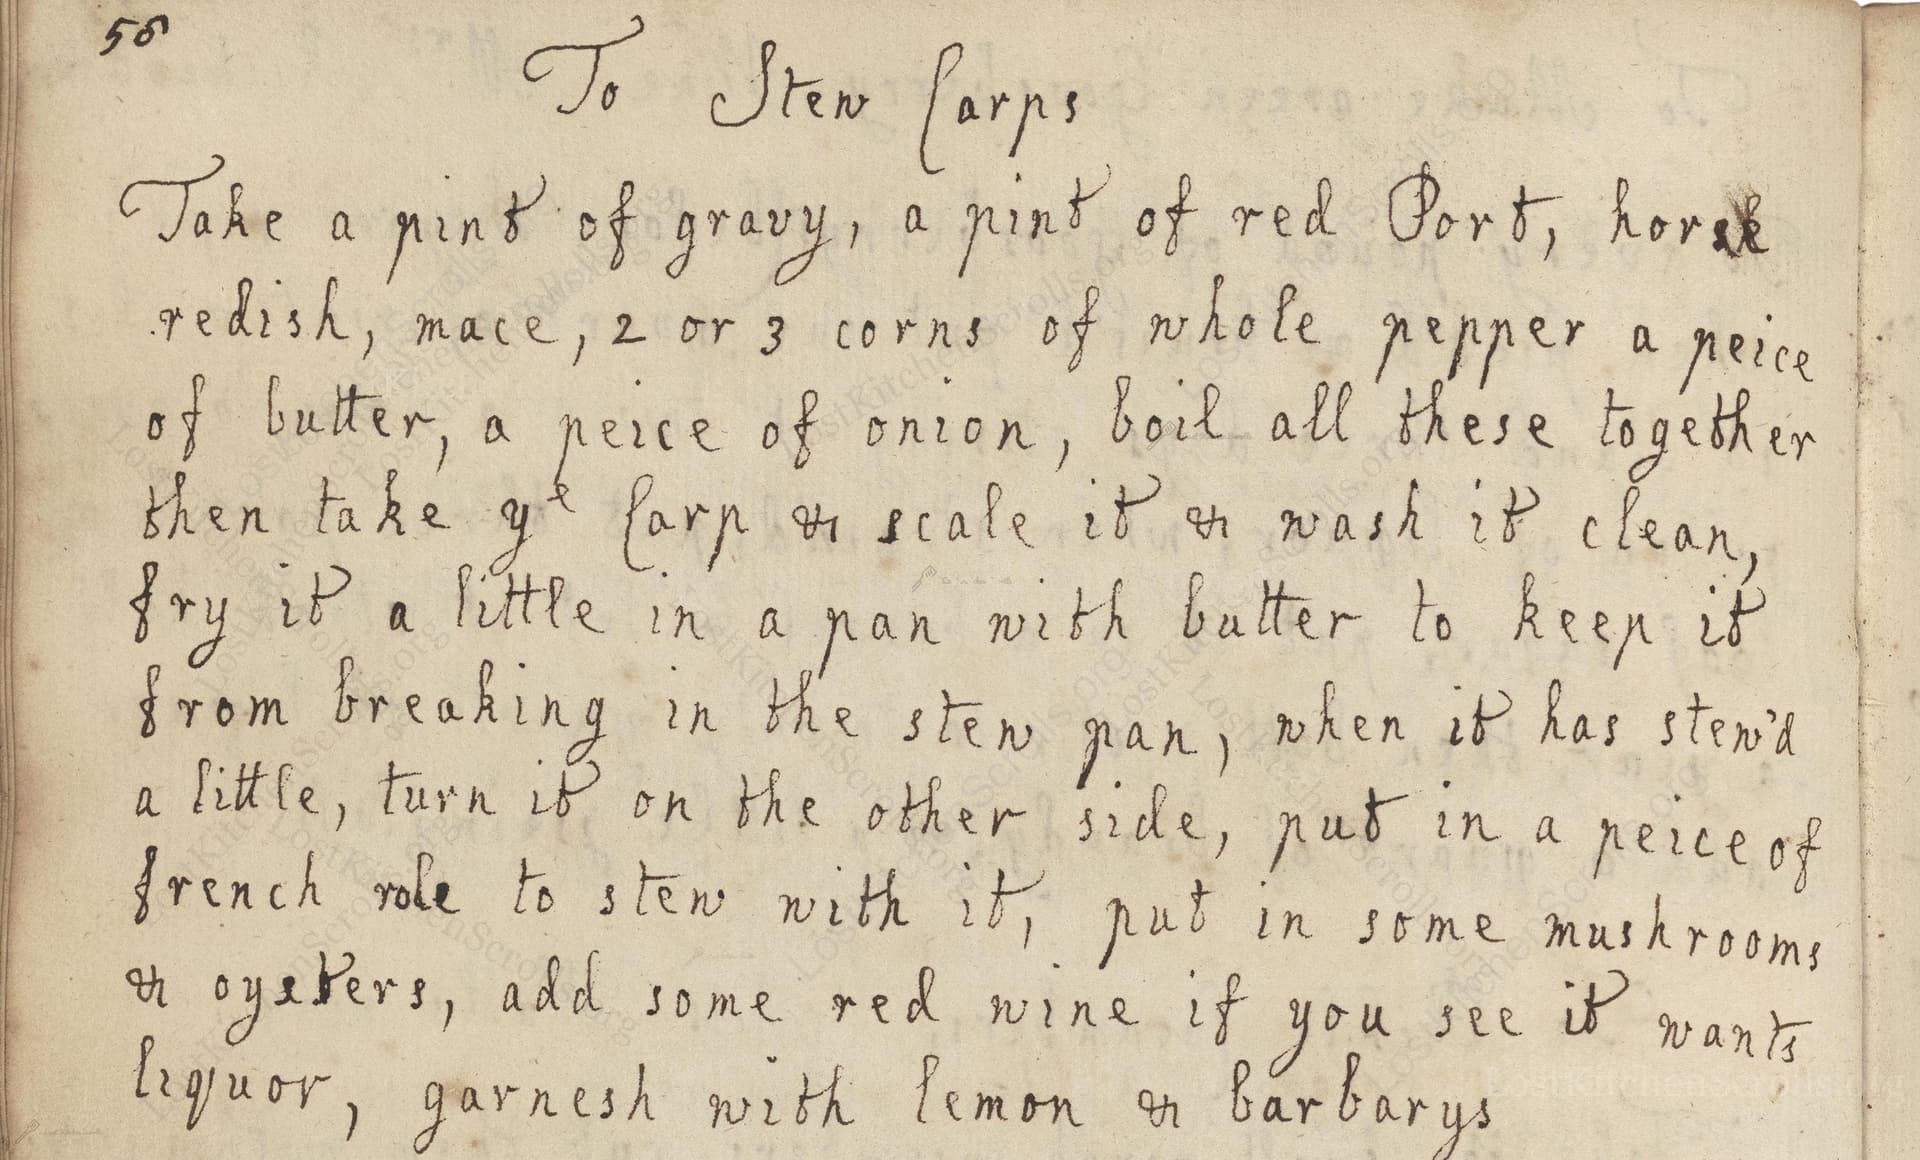 56
To Stew Carps
Take a pint of gravy, a pint of red Port, horse
redish, mace, 2 or 3 corns of whole pepper a peice
of butter, a peice of onion, boil all these together
then take yᵉ Carp & scale it & wash it clean,
fry it a little in a pan with butter to keep it
from breaking in the stew pan, when it has stew'd
a little, turn it on the other side, put in a peice of
french role to stew with it, put in some mushrooms
& oysters, add some red wine if you see it wants
liquor, garnesh with lemon & barbarys